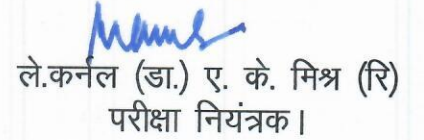 ले.कर्नल (डा.) ए. के. मिश्र (रि)
परीक्षा नियंत्रक।